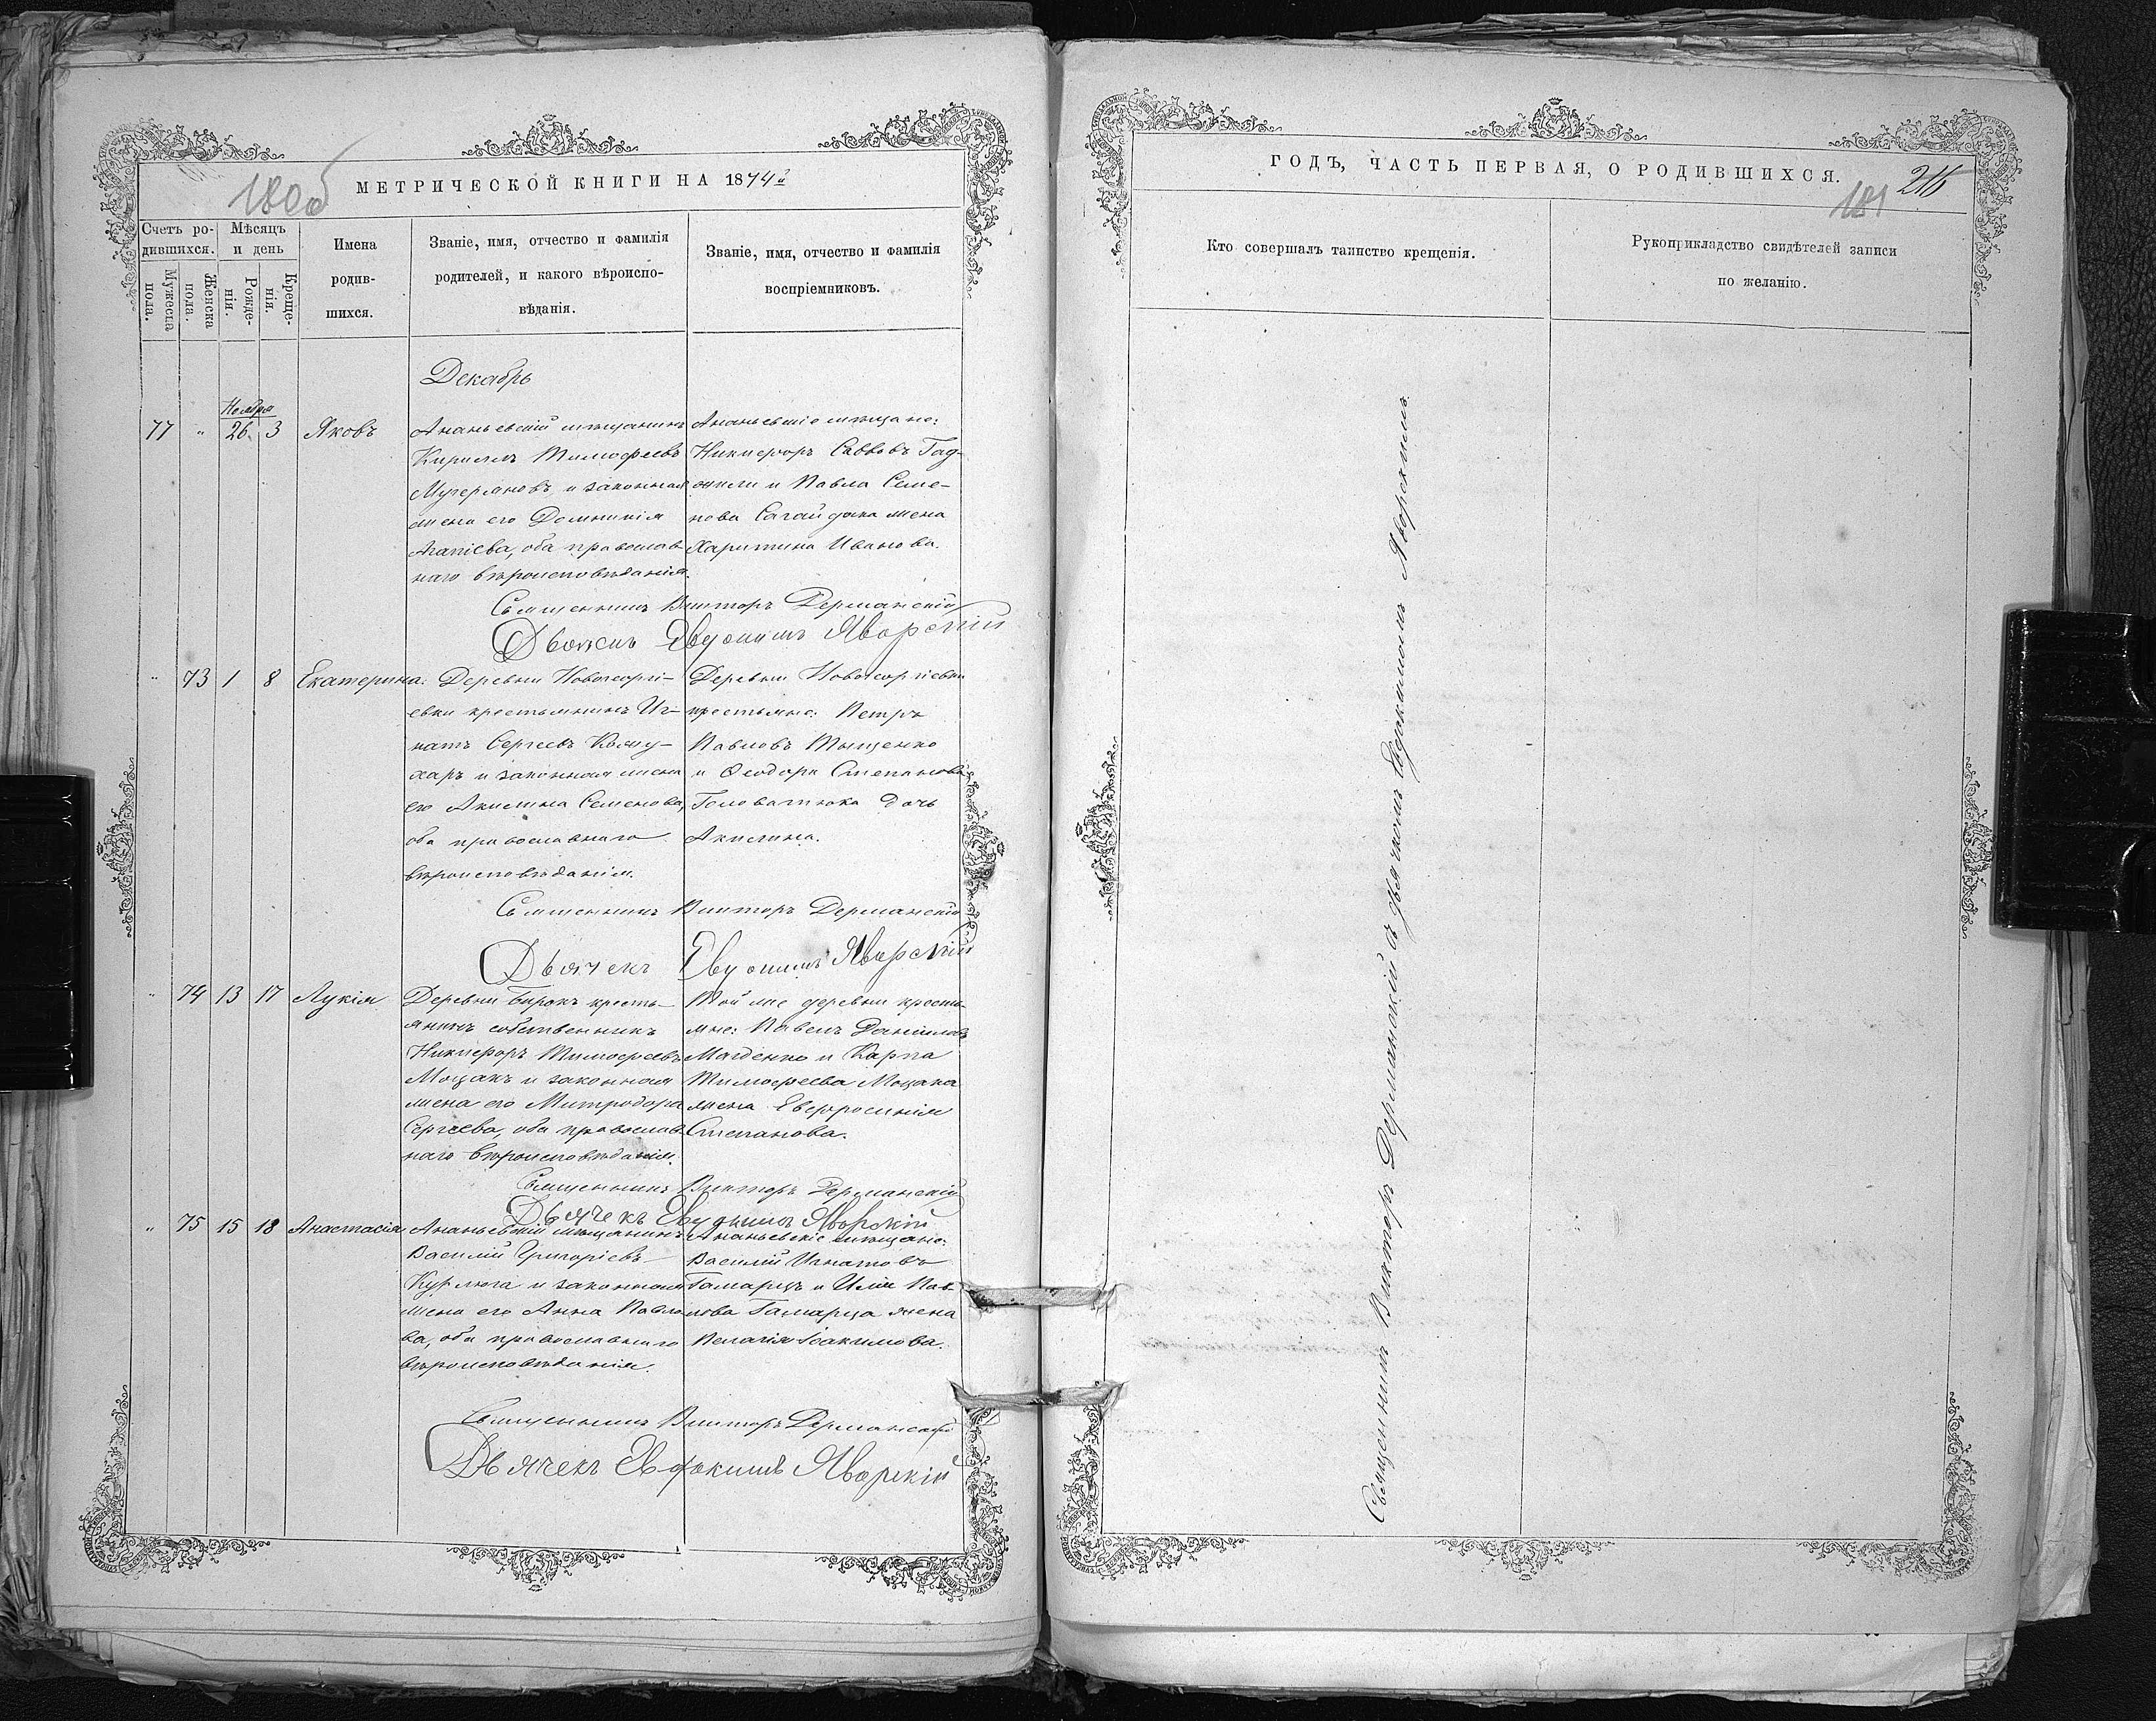 180об
МЕТРИЧЕСКОЙ КНИГИ НА 1874й
Счетъ ро-
дившихся.
Мужеска
пола.
Женска
пола.
Мѣсяцъ
и день
Рожде-
нія.
Креще-
нія.
Имена
родив-
шихся.
Званіе, имя, отчество и фамилія
родителей, и какого вѣроиспо-
вѣданія.
Званіе, имя, отчество и фамилія
воспріемниковъ.
Декабрь
77 " Ноября 26. 3 Яковъ
Ананьевскій мѣщанинъ
Кириллъ Тимофеевъ
и законная
жена его Домникія
Агапіева, оба православ
наго вѣроисповѣданія.
Ананьевскіе мѣщане:
Никифоръ Саввовъ
и Павла Семе-
нова Сагайдака жена
Харитина Иванова.
Священникъ Викторъ Дерманскій
Дьячекъ Евдокимъ Яворскій
" 73 1 8 Екатерина:
Деревни Новогеоргі-
евки крестьянинъ Иг-
натъ Сергеевъ Кожу-
харъ и законная жена
его Акилина Семенова,
оба православнаго
вѣроисповѣданія.
Деревни Новогеоргіевки
крестьяне: Петръ
Павловъ Тищенко
и Ѳеодора Степанова
Головатюка дочь
Акилина.
Священникъ Викторъ Дерманскій
Дьячекъ Евдокимъ Яворскій
" 74 13 17 Лукія
Деревни крестъ-
янинъ собственникъ
Никифоръ Тимофеевъ
Моцакъ и законная
жена его Митродора
Сергеева, оба православ
наго вѣроисповѣданія.
Той же деревни кресть-
яне: Павелъ Даниловъ
Магденко и Карпа
Тимофеева Моцака
жена Евфросинія
Степанова.
Священникъ Викторъ Дерманскій
Дьячекъ Евдокимъ Яворскій
" 75 15 18 Анастасія
Ананьевскій мѣщанинъ
Василій Григоріевъ
и законная
жена его Анна Павло
ва, оба православнаго
вѣроисповѣданія.
Ананьевскіе мѣщане:
Василій Игнатовъ
Гамарцъ и Иліи Пав-
лова Гамарца жена
Пелагія Іоакимова.
Священникъ Викторъ Дерманскій
Дьячекъ Евдокимъ Яворскій
ГОДЪ, ЧАСТЬ ПЕРВАЯ, О РОДИВШИХСЯ.
216
181
Кто совершалъ таинство крещенія.
Рукоприкладство свидѣтелей записи
по желанію.
Священникъ Викторъ Дерманскій съ дьячкомъ Евдокимомъ Яворскимъ.